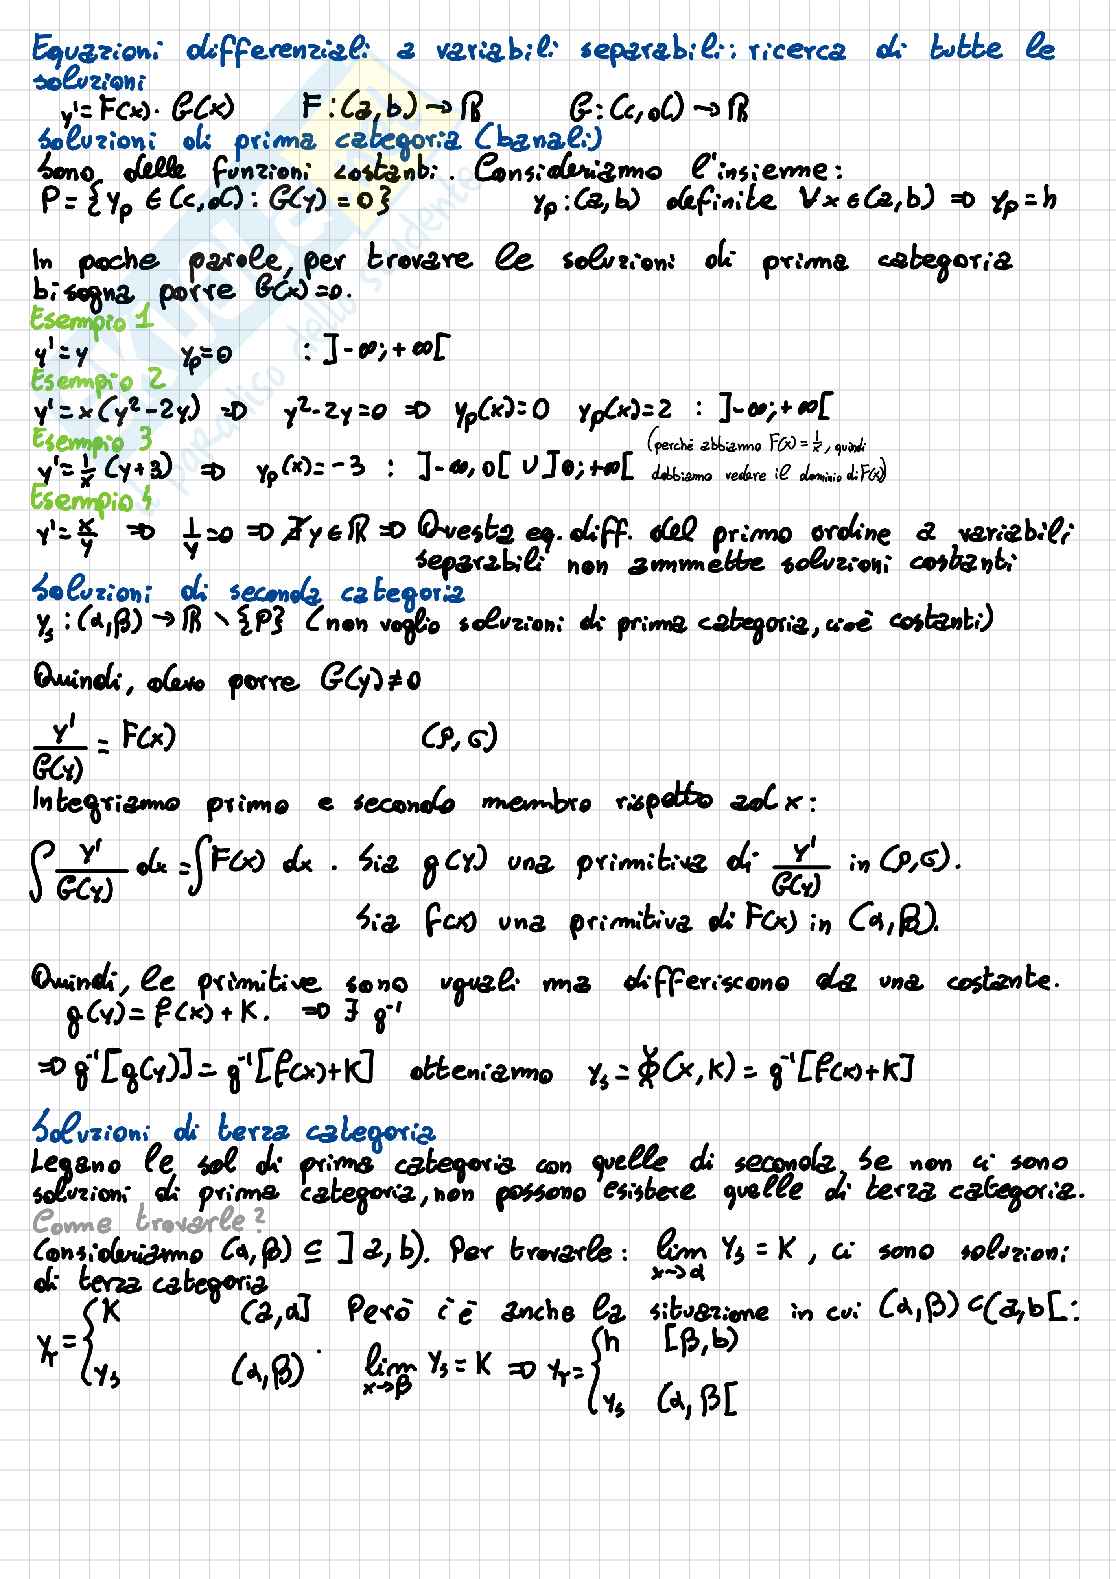 Equazioni differenziali a variabili separabili: ricerca di tutte le
soluzioni
y'= F(x)· G(x) F: (a,b) → ℝ G: (c,d) → ℝ
Soluzioni di prima categoria (banali)
Sono delle funzioni costanti. Consideriamo l'insieme:
P = {yp ∈ (c,d) : G(y) = 0} yp : (a,b) definite ∀x ∈ (a,b) ⇒ yp = h
In poche parole, per trovare le soluzioni di prima categoria
bisogna porre G(x)=0.
Esempio 1
y' = y yp=0 : ]-∞;+∞[
Esempio 2
y' = x(y²-2y) ⇒ y²-2y=0 ⇒ yp(x)=0 yp(x)=2 : ]-∞;+∞[
Esempio 3 (perché abbiamo F(x) = 1/x, quindi
y' = 1/x (y+3) ⇒ yp(x)=-3 : ]-∞,0[ ∪ ]0;+∞[ dobbiamo vedere il dominio di F(x))
Esempio 4
y' = x/y ⇒ 1/y = 0 ⇒ ∄ y ∈ ℝ ⇒ Questa eq. diff. del primo ordine a variabili
separabili non ammette soluzioni costanti
Soluzioni di seconda categoria
ys : (α,β) → ℝ \ {P} (non voglio soluzioni di prima categoria, cioè costanti)
Quindi, devo porre G(y) ≠ 0
y'/G(y) = F(x) (ρ,σ)
Integriamo primo e secondo membro rispetto ad x:
∫ y'/G(y) dx = ∫ F(x) dx . Sia g(y) una primitiva di y'/G(y) in (ρ,σ).
Sia f(x) una primitiva di F(x) in (α,β).
Quindi, le primitive sono uguali ma differiscono da una costante.
g(y) = f(x) + K. ⇒ ∃ g⁻¹
⇒ g⁻¹[g(y)] = g⁻¹[f(x)+K] otteniamo ys = (x,K) = g⁻¹[f(x)+K]
Soluzioni di terza categoria
Legano le sol di prima categoria con quelle di seconda. Se non ci sono
soluzioni di prima categoria, non possono esistere quelle di terza categoria.
Come trovarle?
Consideriamo (α,β) ⊆ ]a,b). Per trovarle: lim x→α ys = K, ci sono soluzioni
di terza categoria
yT = { K (a,α] Però c'è anche la situazione in cui (α,β) ⊂ (a,b[ :
ys (α,β) . lim x→β ys = K ⇒ yT = { h [β,b)
ys (α,β[